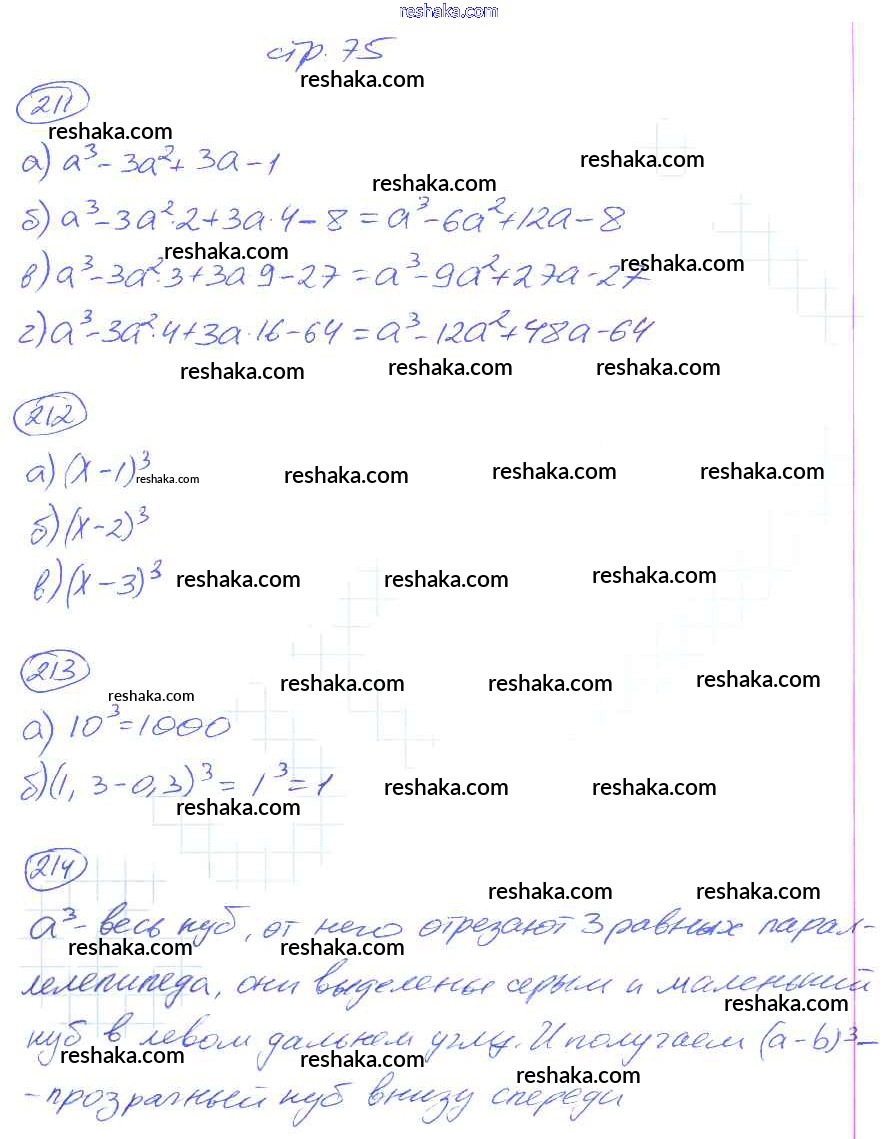 reshaka.com
стр. 75
reshaka.com
211
reshaka.com
а) a³ - 3a² + 3a - 1
reshaka.com
reshaka.com
б) a³ - 3a²·2 + 3a·4 - 8 = a³ - 6a² + 12a - 8
reshaka.com
reshaka.com
в) a³ - 3a²·3 + 3a 9 - 27 = a³ - 9a² + 27a - 27
г) a³ - 3a²·4 + 3a·16 - 64 = a³ - 12a² + 48a - 64
reshaka.com reshaka.com reshaka.com
212
а) (x - 1)³
reshaka.com reshaka.com reshaka.com reshaka.com
б) (x - 2)³
в) (x - 3)³
reshaka.com reshaka.com reshaka.com
213
reshaka.com reshaka.com reshaka.com reshaka.com
а) 10³ = 1000
б) (1,3 - 0,3)³ = 1³ = 1
reshaka.com reshaka.com reshaka.com
214
reshaka.com reshaka.com
a³ - весь куб, от него отрезают 3 равных парал-
reshaka.com reshaka.com
лелепипеда, они выделены серым и маленький
reshaka.com
куб в левом дальнем углу. И получаем (a - b)³ -
reshaka.com reshaka.com reshaka.com
- прозрачный куб внизу спереди